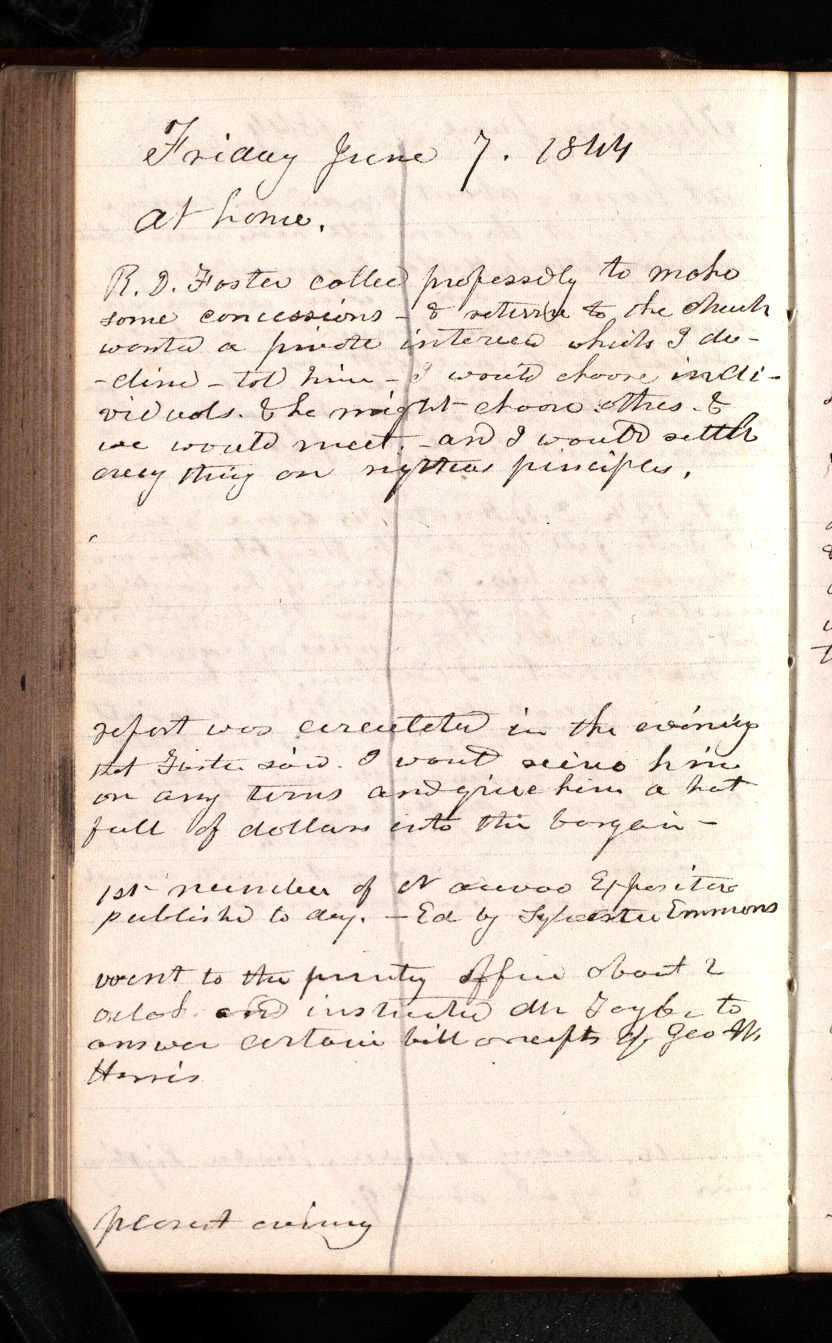 Friday June 7. 1844
at home.
R. D. Foster called professedly to make
some concessions - & return to the church
wanted a private interview which I de-
-clind - told him - I would choose indi-
viduals. & he might choose othes. &
we would meet. - and I would settle
every thing on righteous principles.
report was circulated in the evening
that Foster said. I would recive him
on any terms and give him a hat
full of dollars into the bargain -
1st number of Nauvoo Expositor
publishd to day. - Ed by Sylvester Emmons
went to the printig office about 2
oclock. and instructed Mr Taylor to
answer certain bill of Geo W.
Harris
pleasant evening